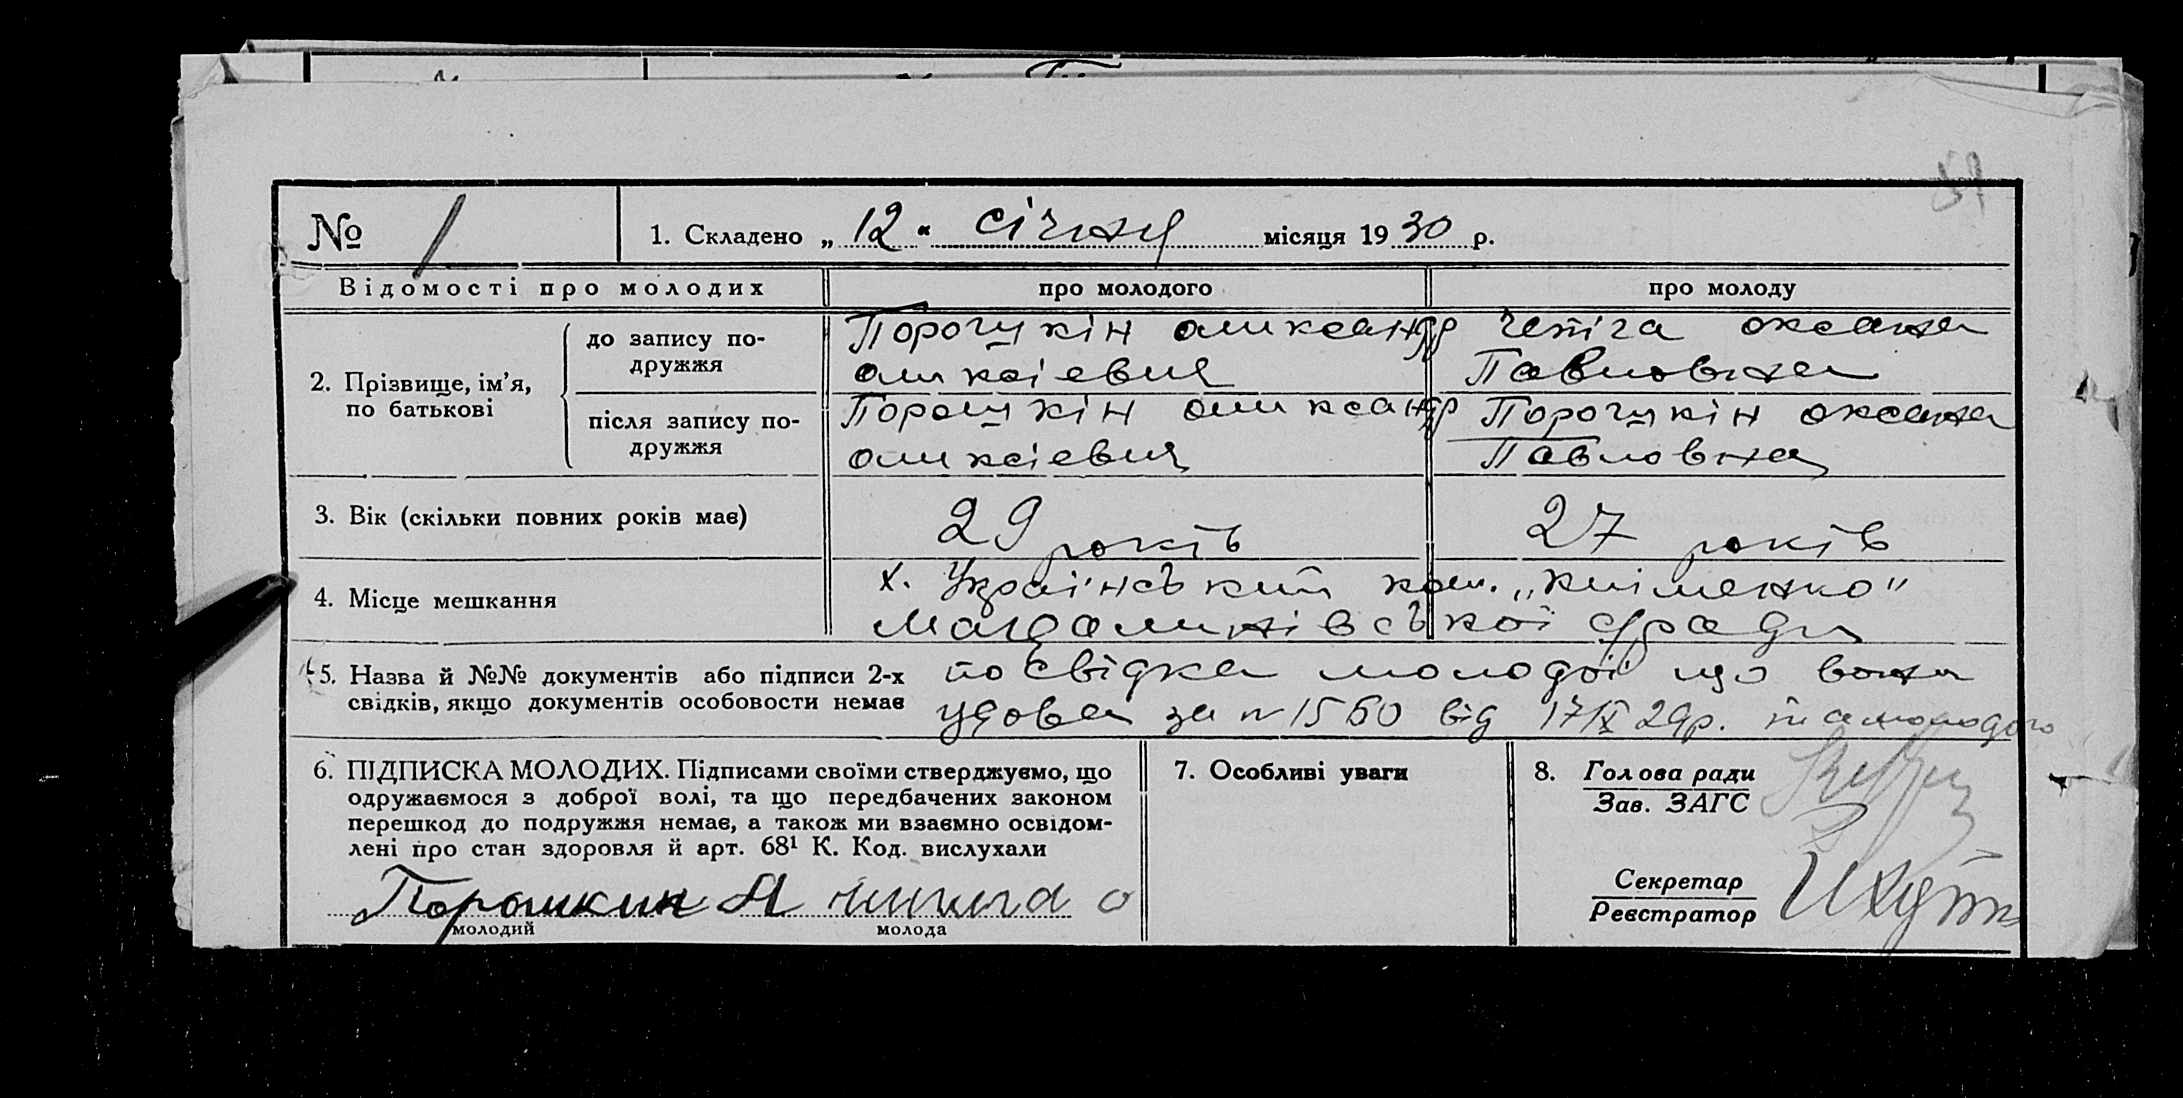 № 1
1. Складено „12" січня місяця 1930 р.
Відомості про молодих
про молодого
про молоду
2. Прізвище, ім'я, по батькові
до запису по-
дружжя
Порошкін олександр
оликсіевич
Чепіга оксана
Павловна
після запису по-
дружжя
Порошкін олександр
оликсіевич
Порошкін оксана
Павловна
3. Вік (скільки повних років має)
29 років
27 років
4. Місце мешкання
х. Український ком. „
Магдалинівської с/ради
5. Назва й №№ документів або підписи 2-х
свідків, якщо документів особовости немає
посвідка молодої що вона
удова за № 1560 від 17/ІХ 29р. та молодого
6. ПІДПИСКА МОЛОДИХ. Підписами своїми стверджуємо, що
одружаємося з доброї волі, та що передбачених законом
перешкод до подружжя немає, а також ми взаємно освідом-
лені про стан здоровля й арт. 68¹ К. Код. вислухали
Порошкин А
молодий
молода
7. Особливі уваги
8. Голова ради
Зав. ЗАГС
Секретар
Реєстратор